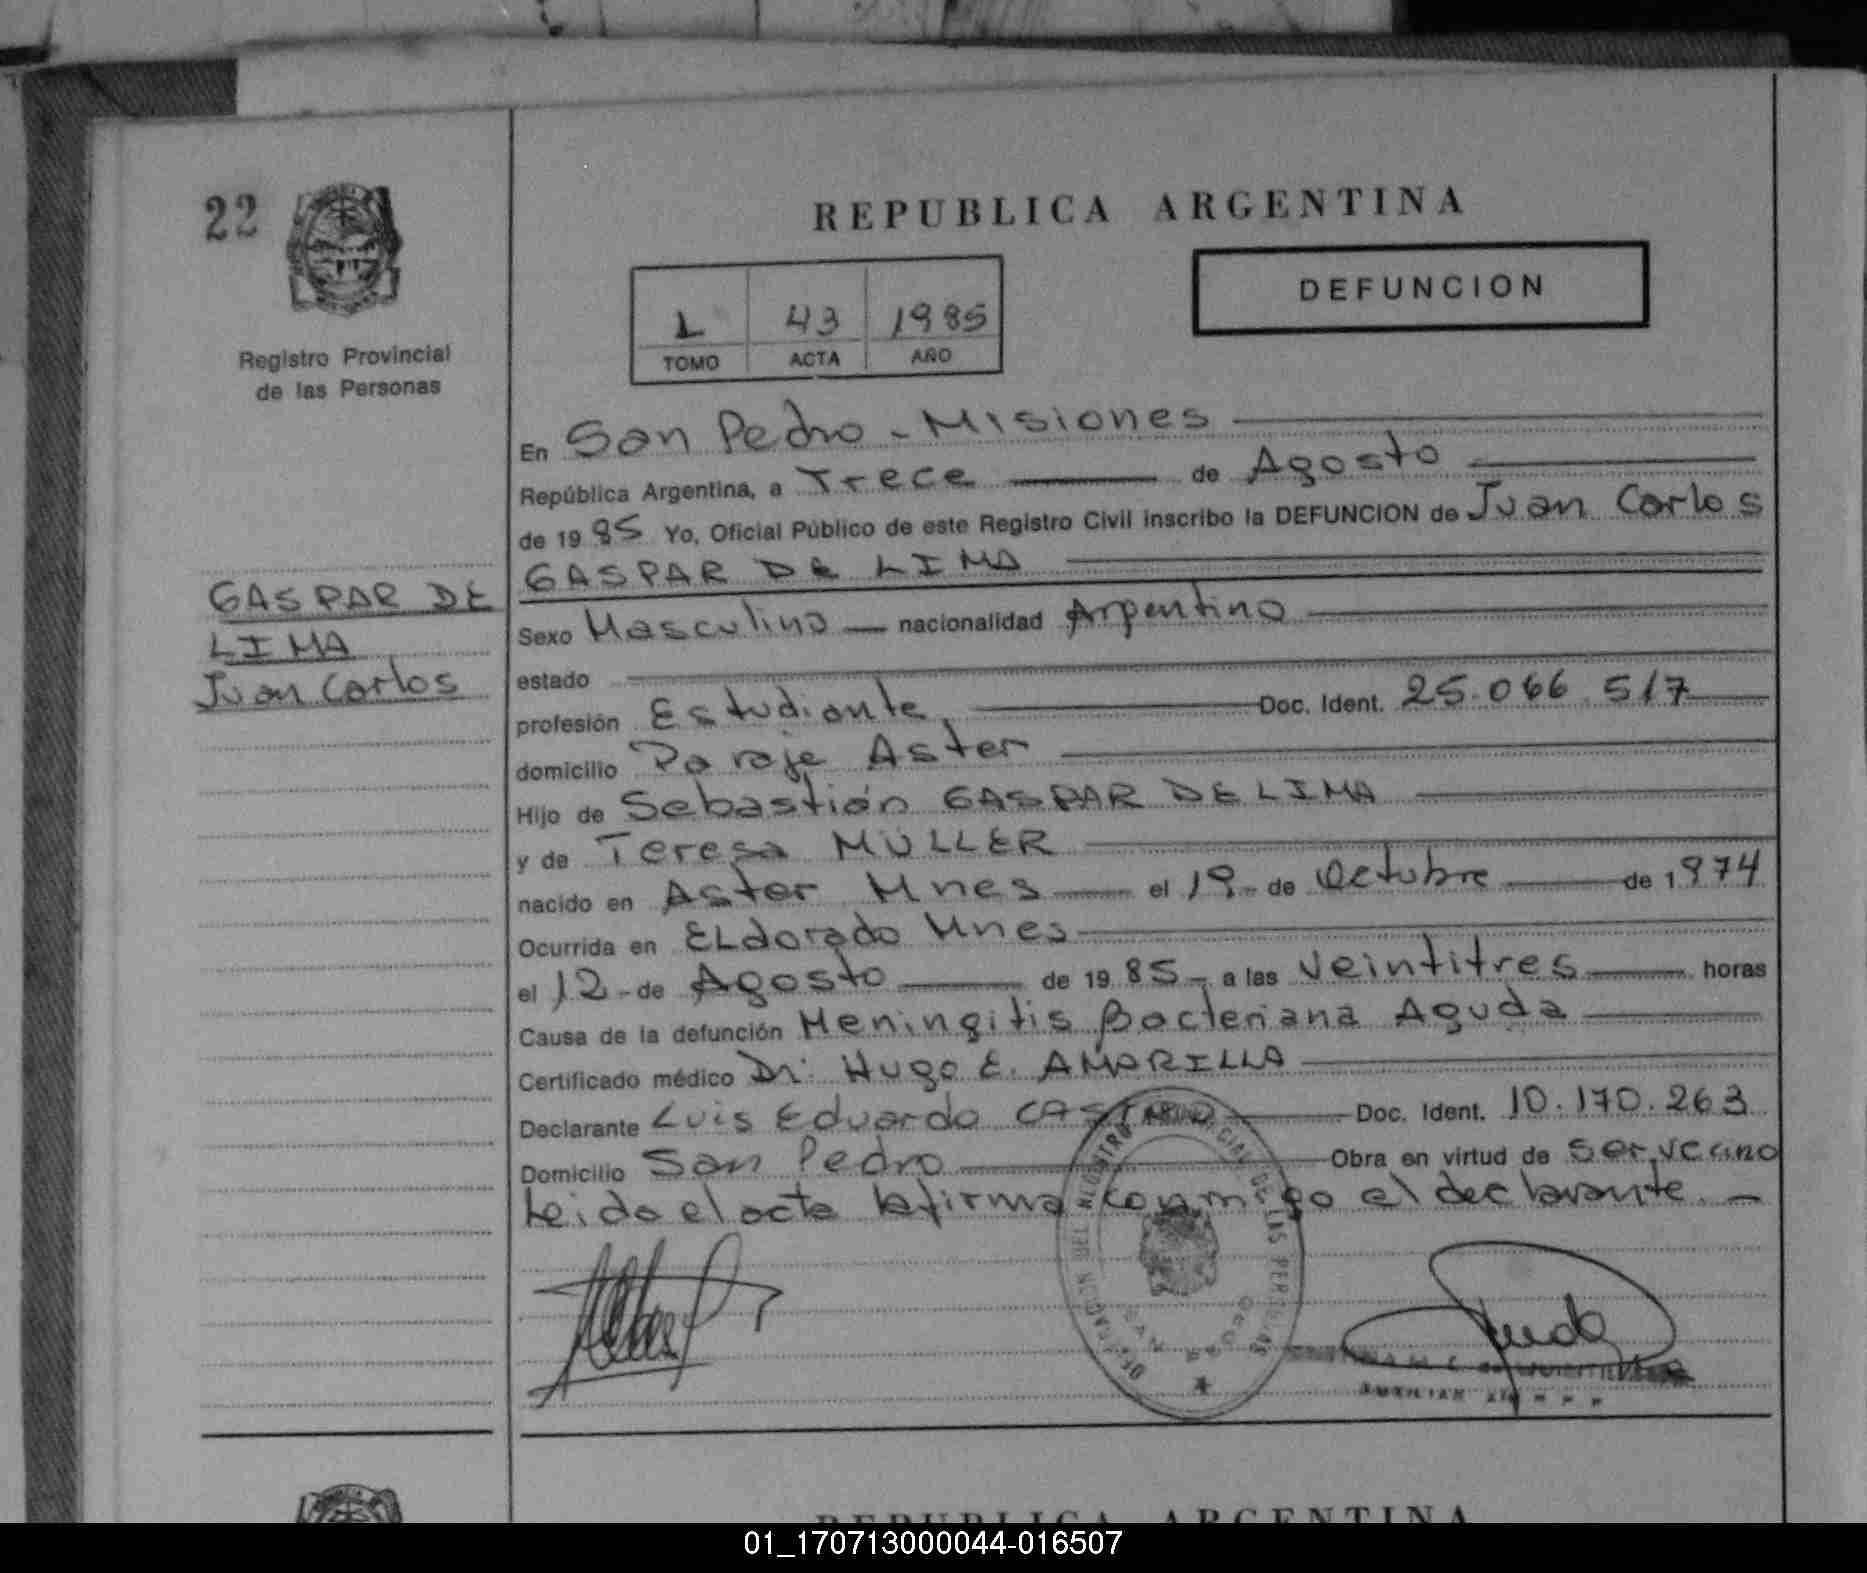 22
Registro Provincial
de las Personas
GASPAR DE
LIMA
Juan Carlos
REPUBLICA ARGENTINA
DEFUNCION
1 43 1985
TOMO ACTA AÑO
En San Pedro - Misiones
República Argentina, a Trece de Agosto
de 1985 Yo, Oficial Público de este Registro Civil inscribo la DEFUNCION de Juan Carlos
GASPAR DE LIMA
Sexo Masculino nacionalidad Argentino
estado
profesión Estudiante, Doc. Ident. 25.066.517
domicilio Paraje Aster
Hijo de Sebastián GASPAR DE LIMA
y de Teresa MÜLLER
nacido en Aster Mnes el 19 - de Octubre de 1974
Ocurrida en ELdorado Mnes
el 12 - de Agosto de 1985 - a las Veintitres horas
Causa de la defunción Meningitis Bacteriana Aguda
Certificado médico Dr: Hugo E. AMARILLA
Declarante Luis Eduardo CASTRO Doc. Ident. 10.170.263
Domicilio San Pedro Obra en virtud de ser vecino
Leida el acta la firma conmigo el declarante. -
DELEGACION DEL REGISTRO PROVINCIAL DE LAS PERSONAS
AUXILIAR
REPUBLICA ARGENTINA
01_170713000044-016507